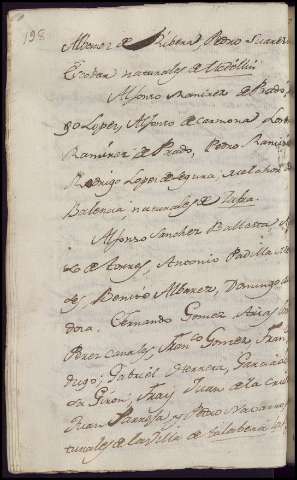 198
Alvarez de Ribera, Pedro Suarez
Escobar naturales de Medellin
Alfonso Ramirez de Prado,
go Lopez, Alfonso de Carmona
Ramirez de Prado, Pedro Rami
Rodrigo Lopez de Segura,
Valencia, naturales de Zafra.
Alfonso Sanchez Ballestas
Antonio Padilla
des, Benito Albarez, Domingo
dora. Fernando Gomez, Arias
Perez Canales, Fran.co Gomez, Fran
drigo; Gabriel Herrera, Garcia
la Giron; Fray Juan de la Cruz
Juan Barrosa, y Pedro Navarro
turales de la Villa de Talabera